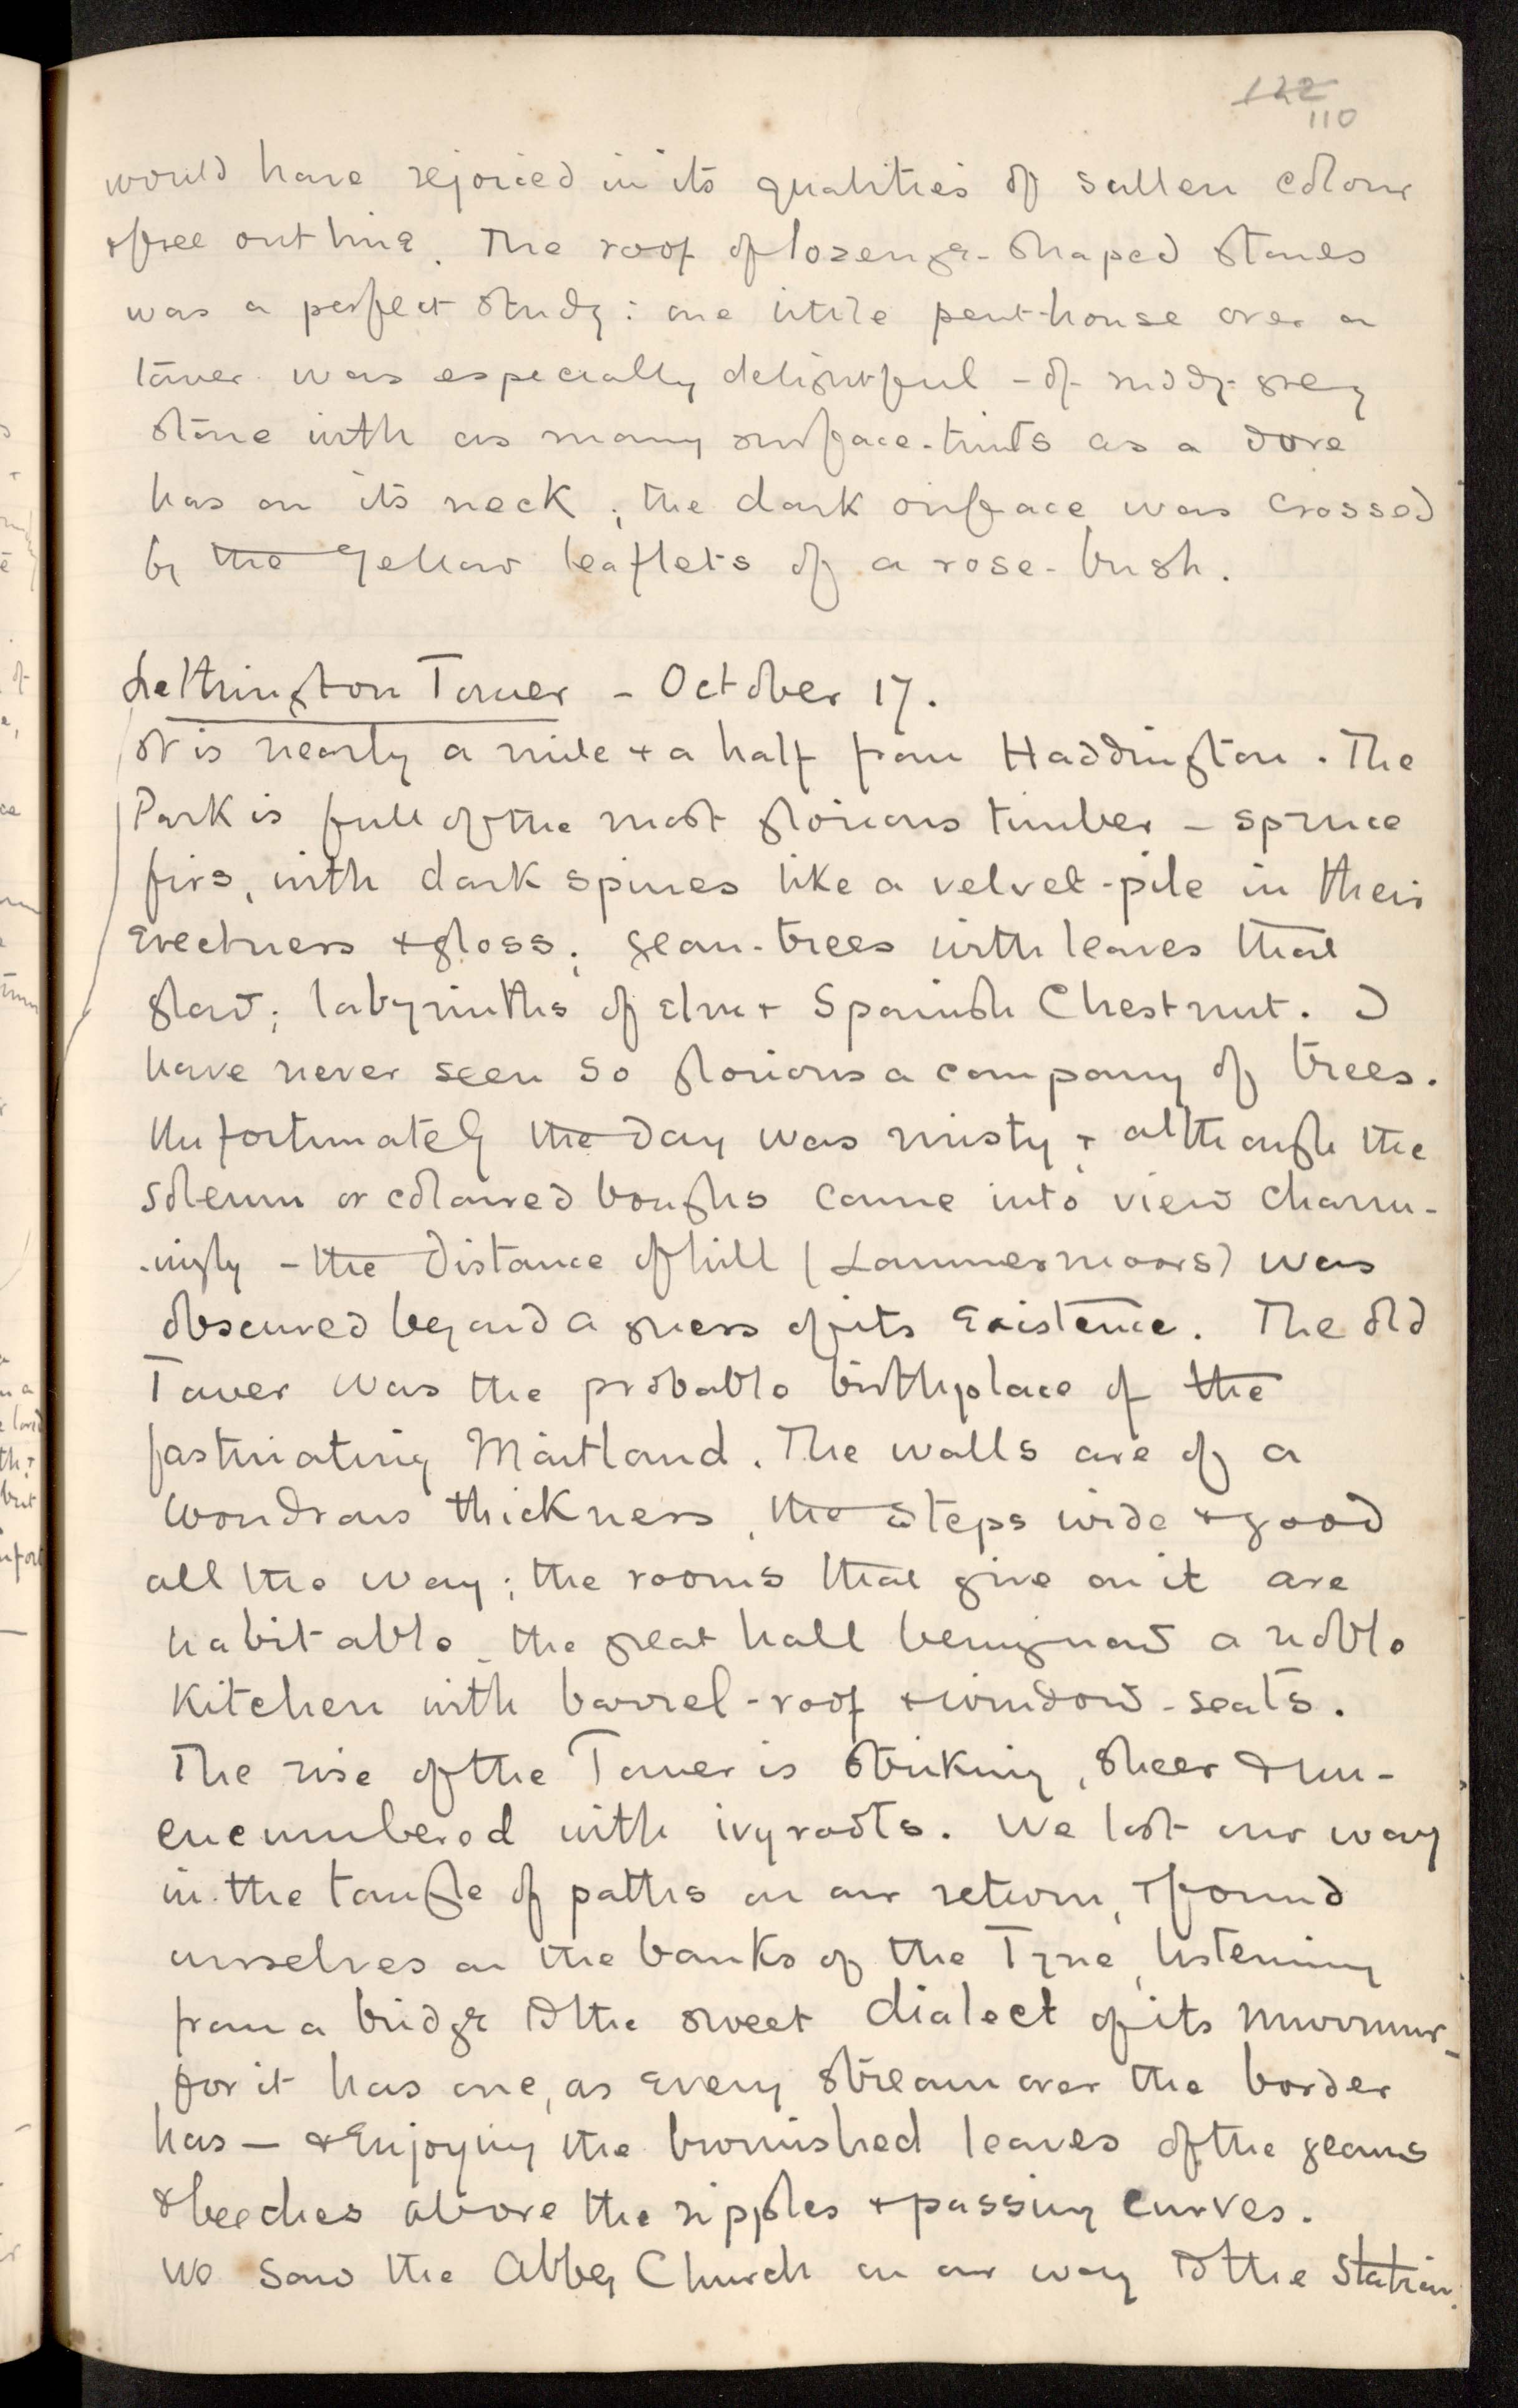 122
110
would have rejoiced in its qualities of sullen colour
& free outline. The roof of lozenge-shaped stones
was a perfect study: one little pent-house over a
tower was especially delightful - of ruddy-grey
stone with as many surface-tints as a dove
has on its neck; the dark surface was crossed
by the yellow leaflets of a rose-bush.
Lethington Tower - October 17.
It is nearly a mile & a half from Haddington. The
Park is full of the most glorious timber - spruce
firs, with dark spines like a velvet-pile in their
erectness & gloss; gean-trees with leaves that
glow; labyrinths of elm & Spanish Chestnut. I
have never seen so glorious a company of trees.
Unfortunately the day was misty & although the
solemn or coloured boughs came into view charm-
-ingly - the distance of hill (Lammermoors) was
obscured beyond a guess of its existence. The old
Tower was the probable birthplace of the
fascinating Maitland. The walls are of a
wondrous thickness, the steps wide & good
all the way; the rooms that give on it are
habitable, the great hall being now a noble
kitchen with barrel-roof & window-seats.
The rise of the Tower is striking, sheer & un-
encumbered with ivy roots. We lost our way
in the tangle of paths on our return, & found
ourselves on the banks of the Tyne, listening
from a bridge to the sweet dialect of its murmur -
for it has one, as every stream over the border
has - & enjoying the burnished leaves of the geans
& beeches above the ripples & passing curves.
We saw the Abbey Church on our way to the station.